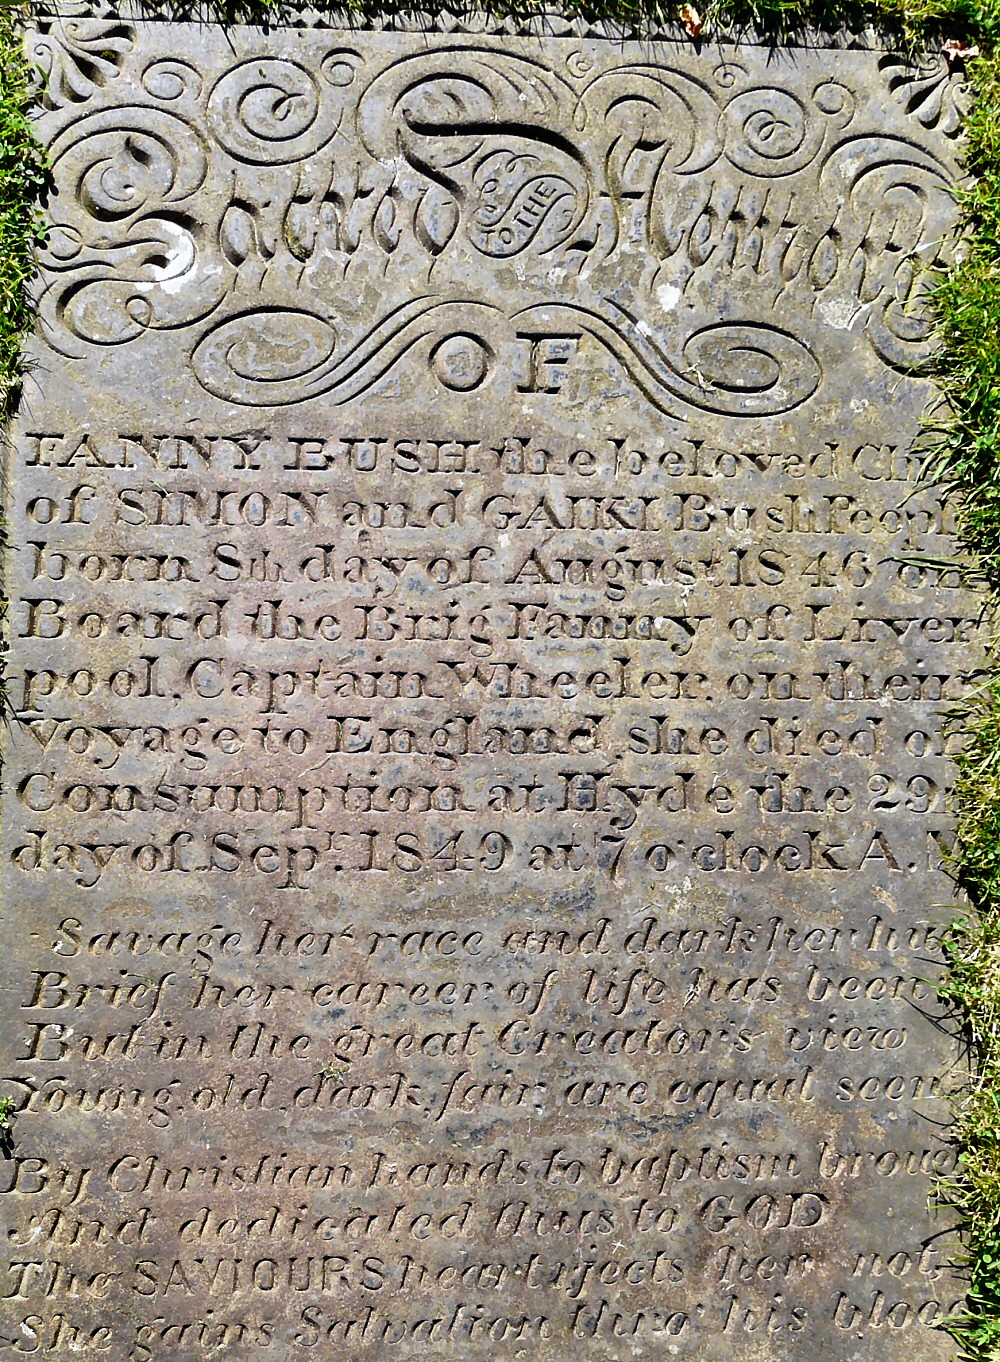 Sacred TO THE Memory
OF
FANNY BUSH the beloved Chi
of SIMON and GAIKI Bush Peopl
born 8th day of August 1846 on
Board the Brig Fanny of Liver
pool, Captain Wheeler, on their
Voyage to England she died of
Consumption at Hyde the 29
day of Sepr. 1849 at 7 o'clock A.M
Savage her race and dark her hue
Brief her career of life has been
But in the great Creator's view
Young, old, dark, fair, are equal seen
By Christian hands to baptism broug
And dedicated thus to GOD
The SAVIOURS heart rejects her not,
She gains Salvation thro' his bloo